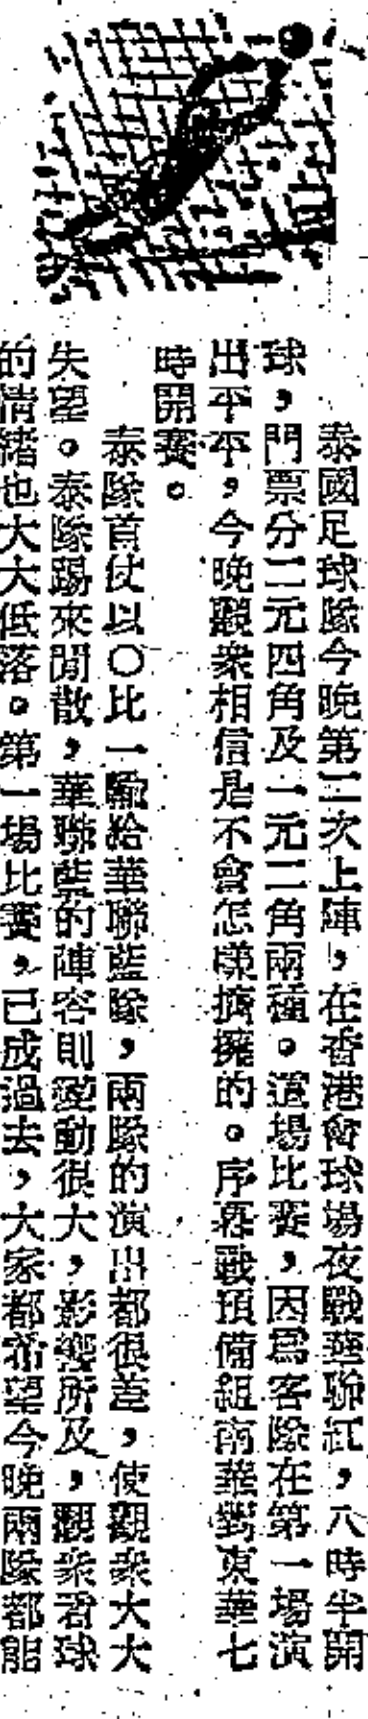 泰國足球隊今晚第二次上陣，在香港會球場夜戰華聯紅，八時半開
球，門票分二元四角及一元二角兩種。這場比賽，因爲客隊在第一場演
出平平，今晚觀衆相信是不會怎樣擠擁的。序幕戰預備組南華對東華七
時開賽。
泰隊首仗以〇比一輸給華聯藍隊，兩隊的演出都很差，使觀衆大大
失望。泰隊踢來閒散，華聯藍的陣容則變動很大，影響所及，觀衆看球
的情緒也大大低落。第一場比賽，已成過去，大家都希望今晚兩隊都能